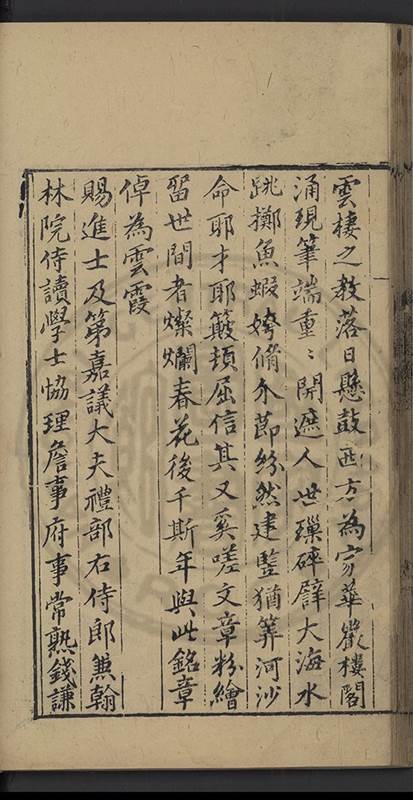 雲棲之教落日懸鼓西方為家華嚴樓閣
涌現筆端重〻開遮人世璅碎譬大海水
跳擲魚蝦姱脩外節紛然建豎猶筭河沙
命耶才耶簸頓屈信其又奚嗟文章粉繪
留世間者燦爛春花後千斯年與此銘章
倬為雲霞
賜進士及第嘉議大夫禮部右侍郎兼翰
林院侍讀學士協理詹事府事常熟錢謙